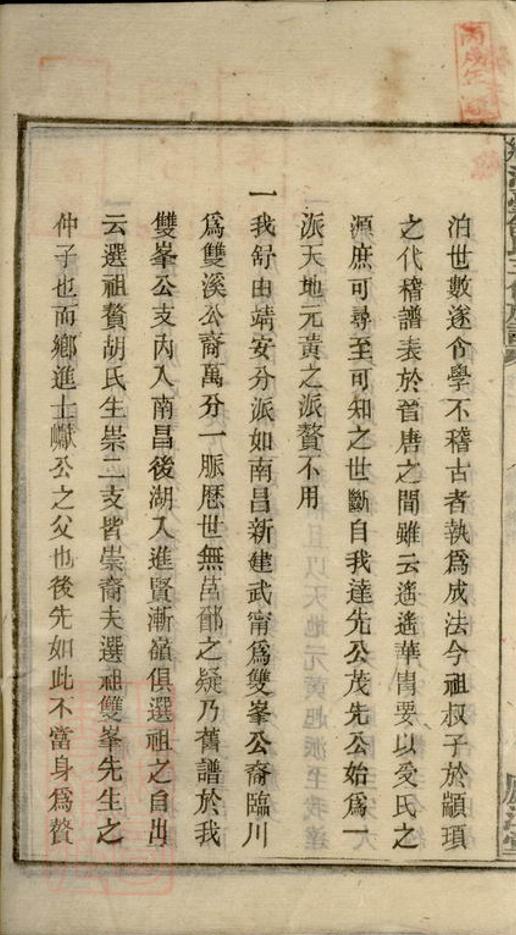 泊世數遂令學不稽古者執爲成法今祖叔子於顓頊
之代稽譜表於晉唐之間雖云遙遙華胄要以受氏之
源庶可尋至可知之世斷自我達先公茂先公始爲一
派天地元黃之派贅不用
一我舒由靖安分派如南昌新建武甯爲雙峯公裔臨川
爲雙溪公裔萬分一脈歷世無莒鄫之疑乃舊譜於我
雙峯公支內入南昌後湖入進賢漸嶺俱選祖之自出
云選祖贅胡氏生崇二支皆崇裔夫選祖雙峯先生之
仲子也而鄉進士巘公之父也後先如此不當身爲贅